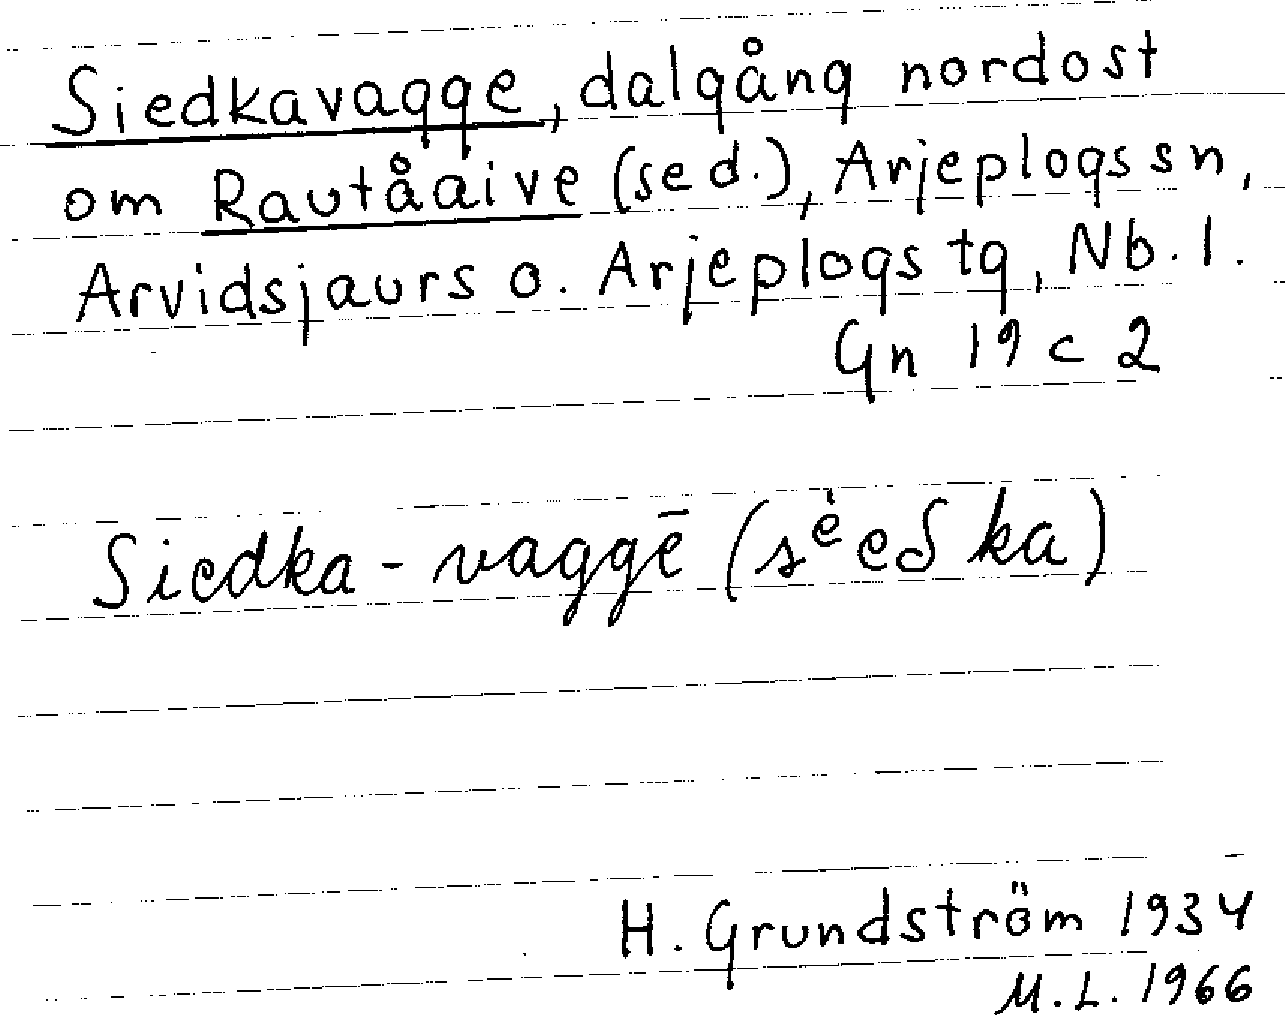 Siedkavagge, dalgång nordost
om Rautåaive (sed.), Arjeplogs sn,
Arvidsjaurs o. Arjeplogs tg, Nb. l.
Gn 19 c 2
Siedka-vaggē (sėeδka)
H. Grundström 1934
M.L. 1966